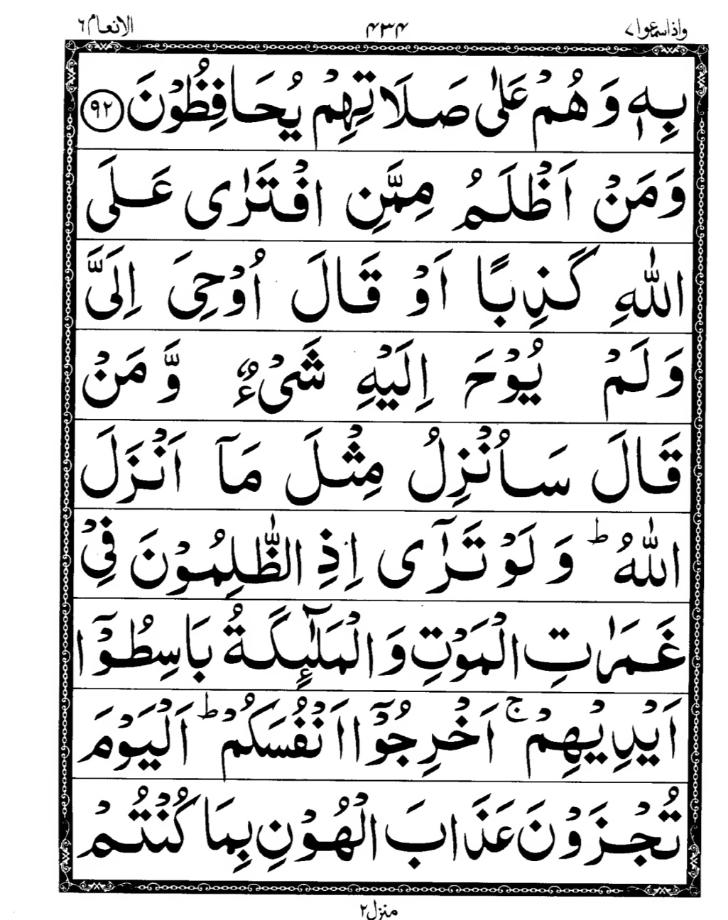 واذاسمعوا٧ ۴۳۴ الانعام٦
بِهٖ وَهُمْ عَلٰى صَلَاتِهِمْ يُحَافِظُوْنَ ﴿۹۲﴾
وَمَنْ اَظْلَمُ مِمَّنِ افْتَرٰى عَلَى
اللّٰهِ كَذِبًا اَوْ قَالَ اُوْحِیَ اِلَیَّ
وَلَمْ يُوْحَ اِلَيْهِ شَیْءٌ وَّمَنْ
قَالَ سَاُنْزِلُ مِثْلَ مَاۤ اَنْزَلَ
اللّٰهُ ؕ وَلَوْ تَرٰۤى اِذِ الظّٰلِمُوْنَ فِیْ
غَمَرٰتِ الْمَوْتِ وَالْمَلٰٓىِٕكَةُ بَاسِطُوْۤا
اَيْدِيْهِمْ ۚ اَخْرِجُوْۤا اَنْفُسَكُمْ ؕ اَلْيَوْمَ
تُجْزَوْنَ عَذَابَ الْهُوْنِ بِمَا كُنْتُمْ
منزل٢